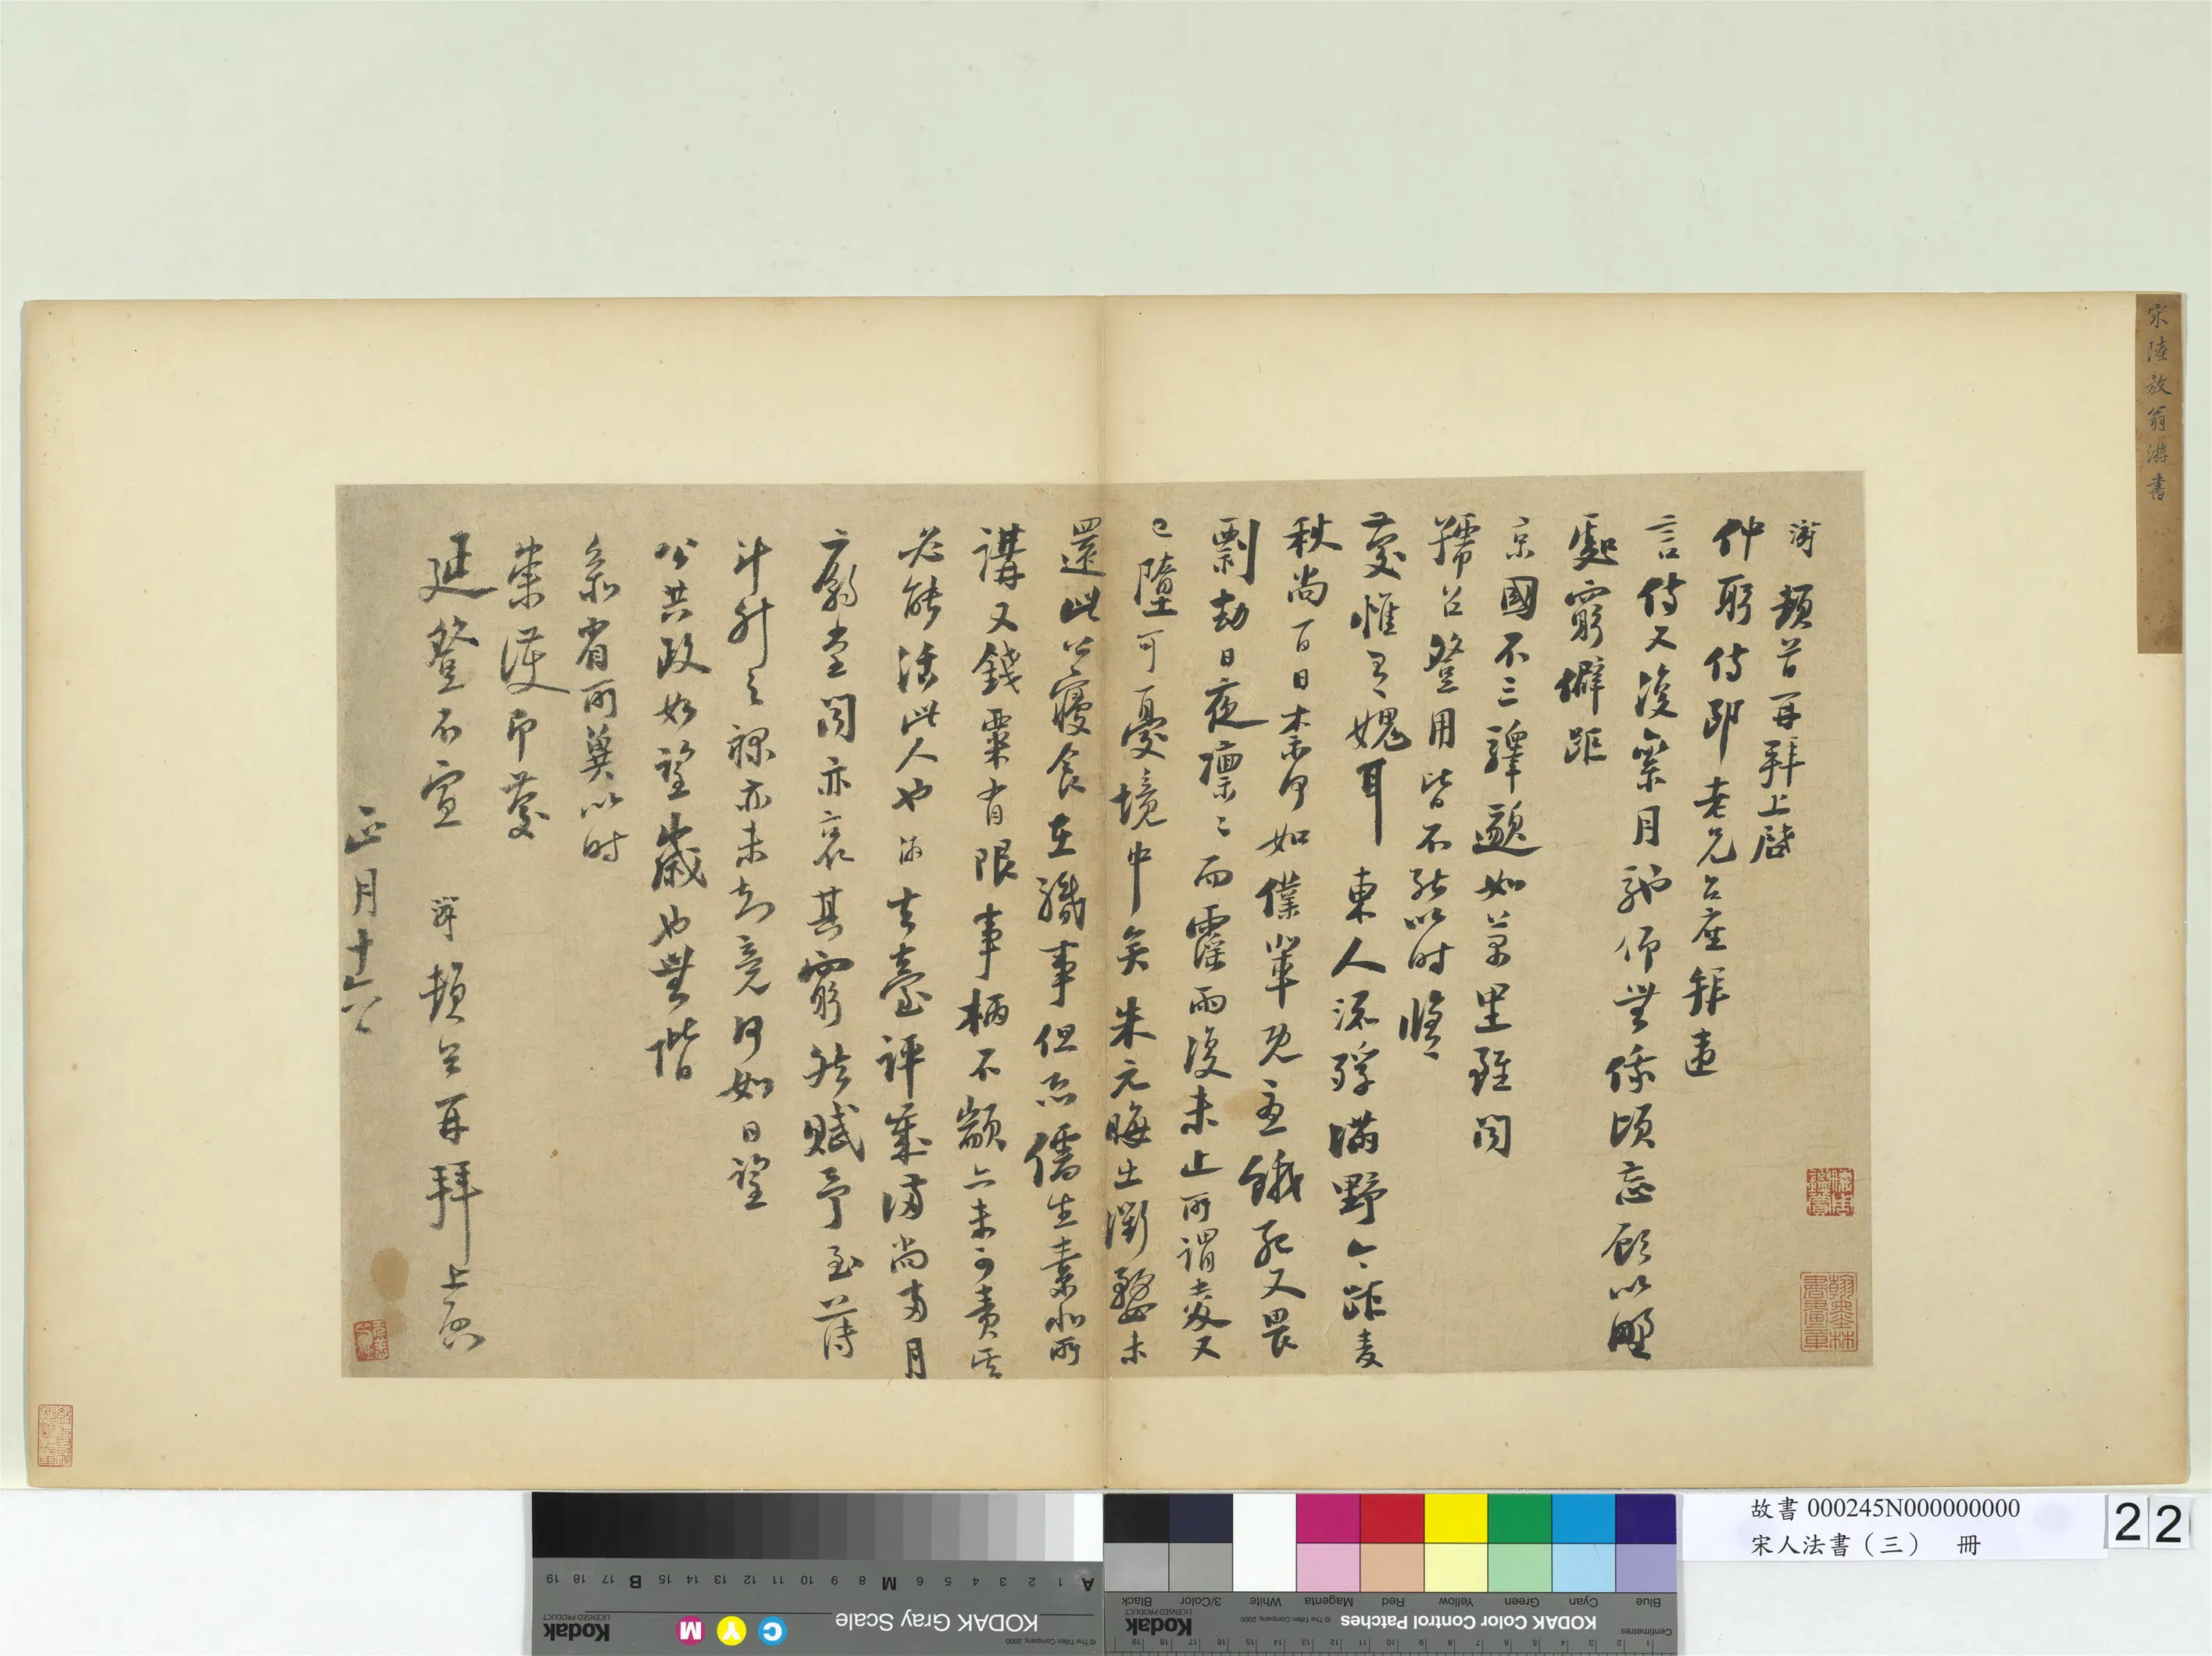 宋陸放翁游書
游頓首再拜上啓
仲躬侍郎老兄台座拜違
言侍又復累月馳仰無俟頃忘顧以野
處窮僻距
京國不三驛邈如萬里雖聞
號召登用皆不能以時修
慶惟有愧耳東人流殍滿野今距麥
秋尚百日奈何如僕輩既憂餓死又畏
剽劫日夜凜凜而霪雨復未止所謂麥又
已墮可憂境中矣朱元晦出衢婺未
還此公寢食在職事但恐儒生素非所
講又錢粟有限事柄不顓亦未可責其
必能活此人也游去臺評歲滿尚兩月
廟堂聞亦哀其窮然賦予至薄
斗升之祿亦未知竟何如日望
公共政如望歲也無階
參省所冀以時
崇護即慶
延登不宣 游頓首再拜上啓
正月十六日
翰墨林書畫章
故書 000245N000000000
宋人法書（三） 冊
22
KODAK Gray Scale
C Y M
Kodak
LICENSED PRODUCT
© The Tiffen Company, 2000
A 1 2 3 4 5 6 M 8 9 10 11 12 13 14 15 B 17 18 19
KODAK Color Control Patches
© The Tiffen Company, 2000
Kodak
LICENSED PRODUCT
Blue Cyan Green Yellow Red Magenta White 3/Color Black
Centimetres